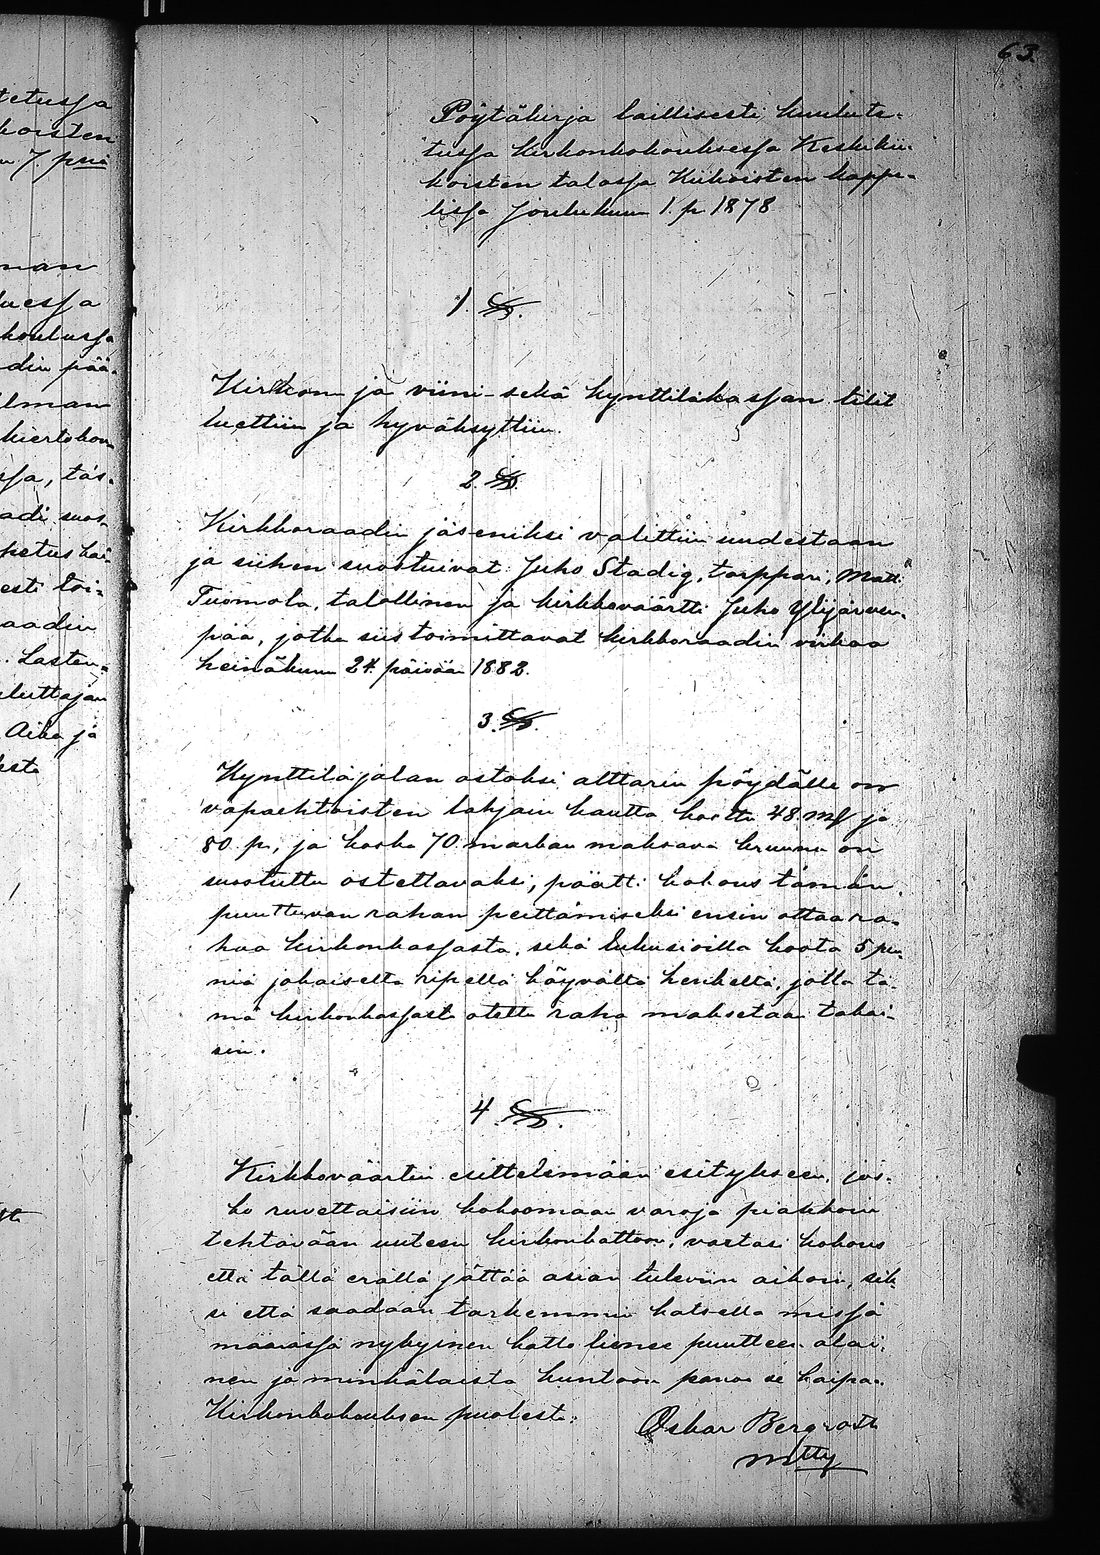 63.
tetussa
koisten
n 7 p:nä
man
uessa
koulussa
din pää-
lman
kiertokou
ssa, täs-
adi suos-
petus hä
esti toi-
aadin
. Lasten-
uluttajan
Aika ja
Pöytäkirja laillisesti kuulute-
tussa kirkonkokouksessa Keskikii-
koisten talossa Kiikoisten kappe-
lissa Joulukuun 1. p. 1878
1. §.
Kirkon ja viini- sekä kynttiläkassan tilit
luettiin ja hyväksyttiin.
2. §.
Kirkkoraadin jäseniksi valittiin uudestaan
ja siihen suostuivat: Juho Stadig, torppari, Matti
Tuomola, talollinen ja kirkkoväärtti Juho Ylijärven-
pää, jotka siis toimittavat kirkkoraadin virkaa
heinäkuun 24 päivään 1882.
3. §.
Kynttiläjalan ostoksi alttarin pöydälle on
vapaehtoisten lahjain kautta koottu 48 mk ja
80 p.; ja koska 70 markan maksava kruunu on
suostuttu ostettavaksi, päätti kokous tämän
puuttuvan rahan peittämiseksi ensin ottaa ra-
haa kirkonkassasta, sekä lukusioilla koota 5 pen-
niä jokaiselta ripillä käyvältä henkeltä, jolla tä-
mä kirkonkassasta otettu raha maksetaan takai-
sin.
4. §.
Kirkkoväärtin esittelemään esitykseen, jos-
ko ruvettaisiin kokoomaan varoja piakkoin
tehtävään uuteen kirkonkattoon, vastasi kokous
että tällä erällä jättää asian tuleviin aikoin, sik-
si että saadaan tarkemmin katsella missä
määrässä nykyinen katto lienee puutteen alai-
nen ja minkälaista kuntoon panoa se kaipaa.
Kirkonkokouksen puolesta:
Oskar Bergroth